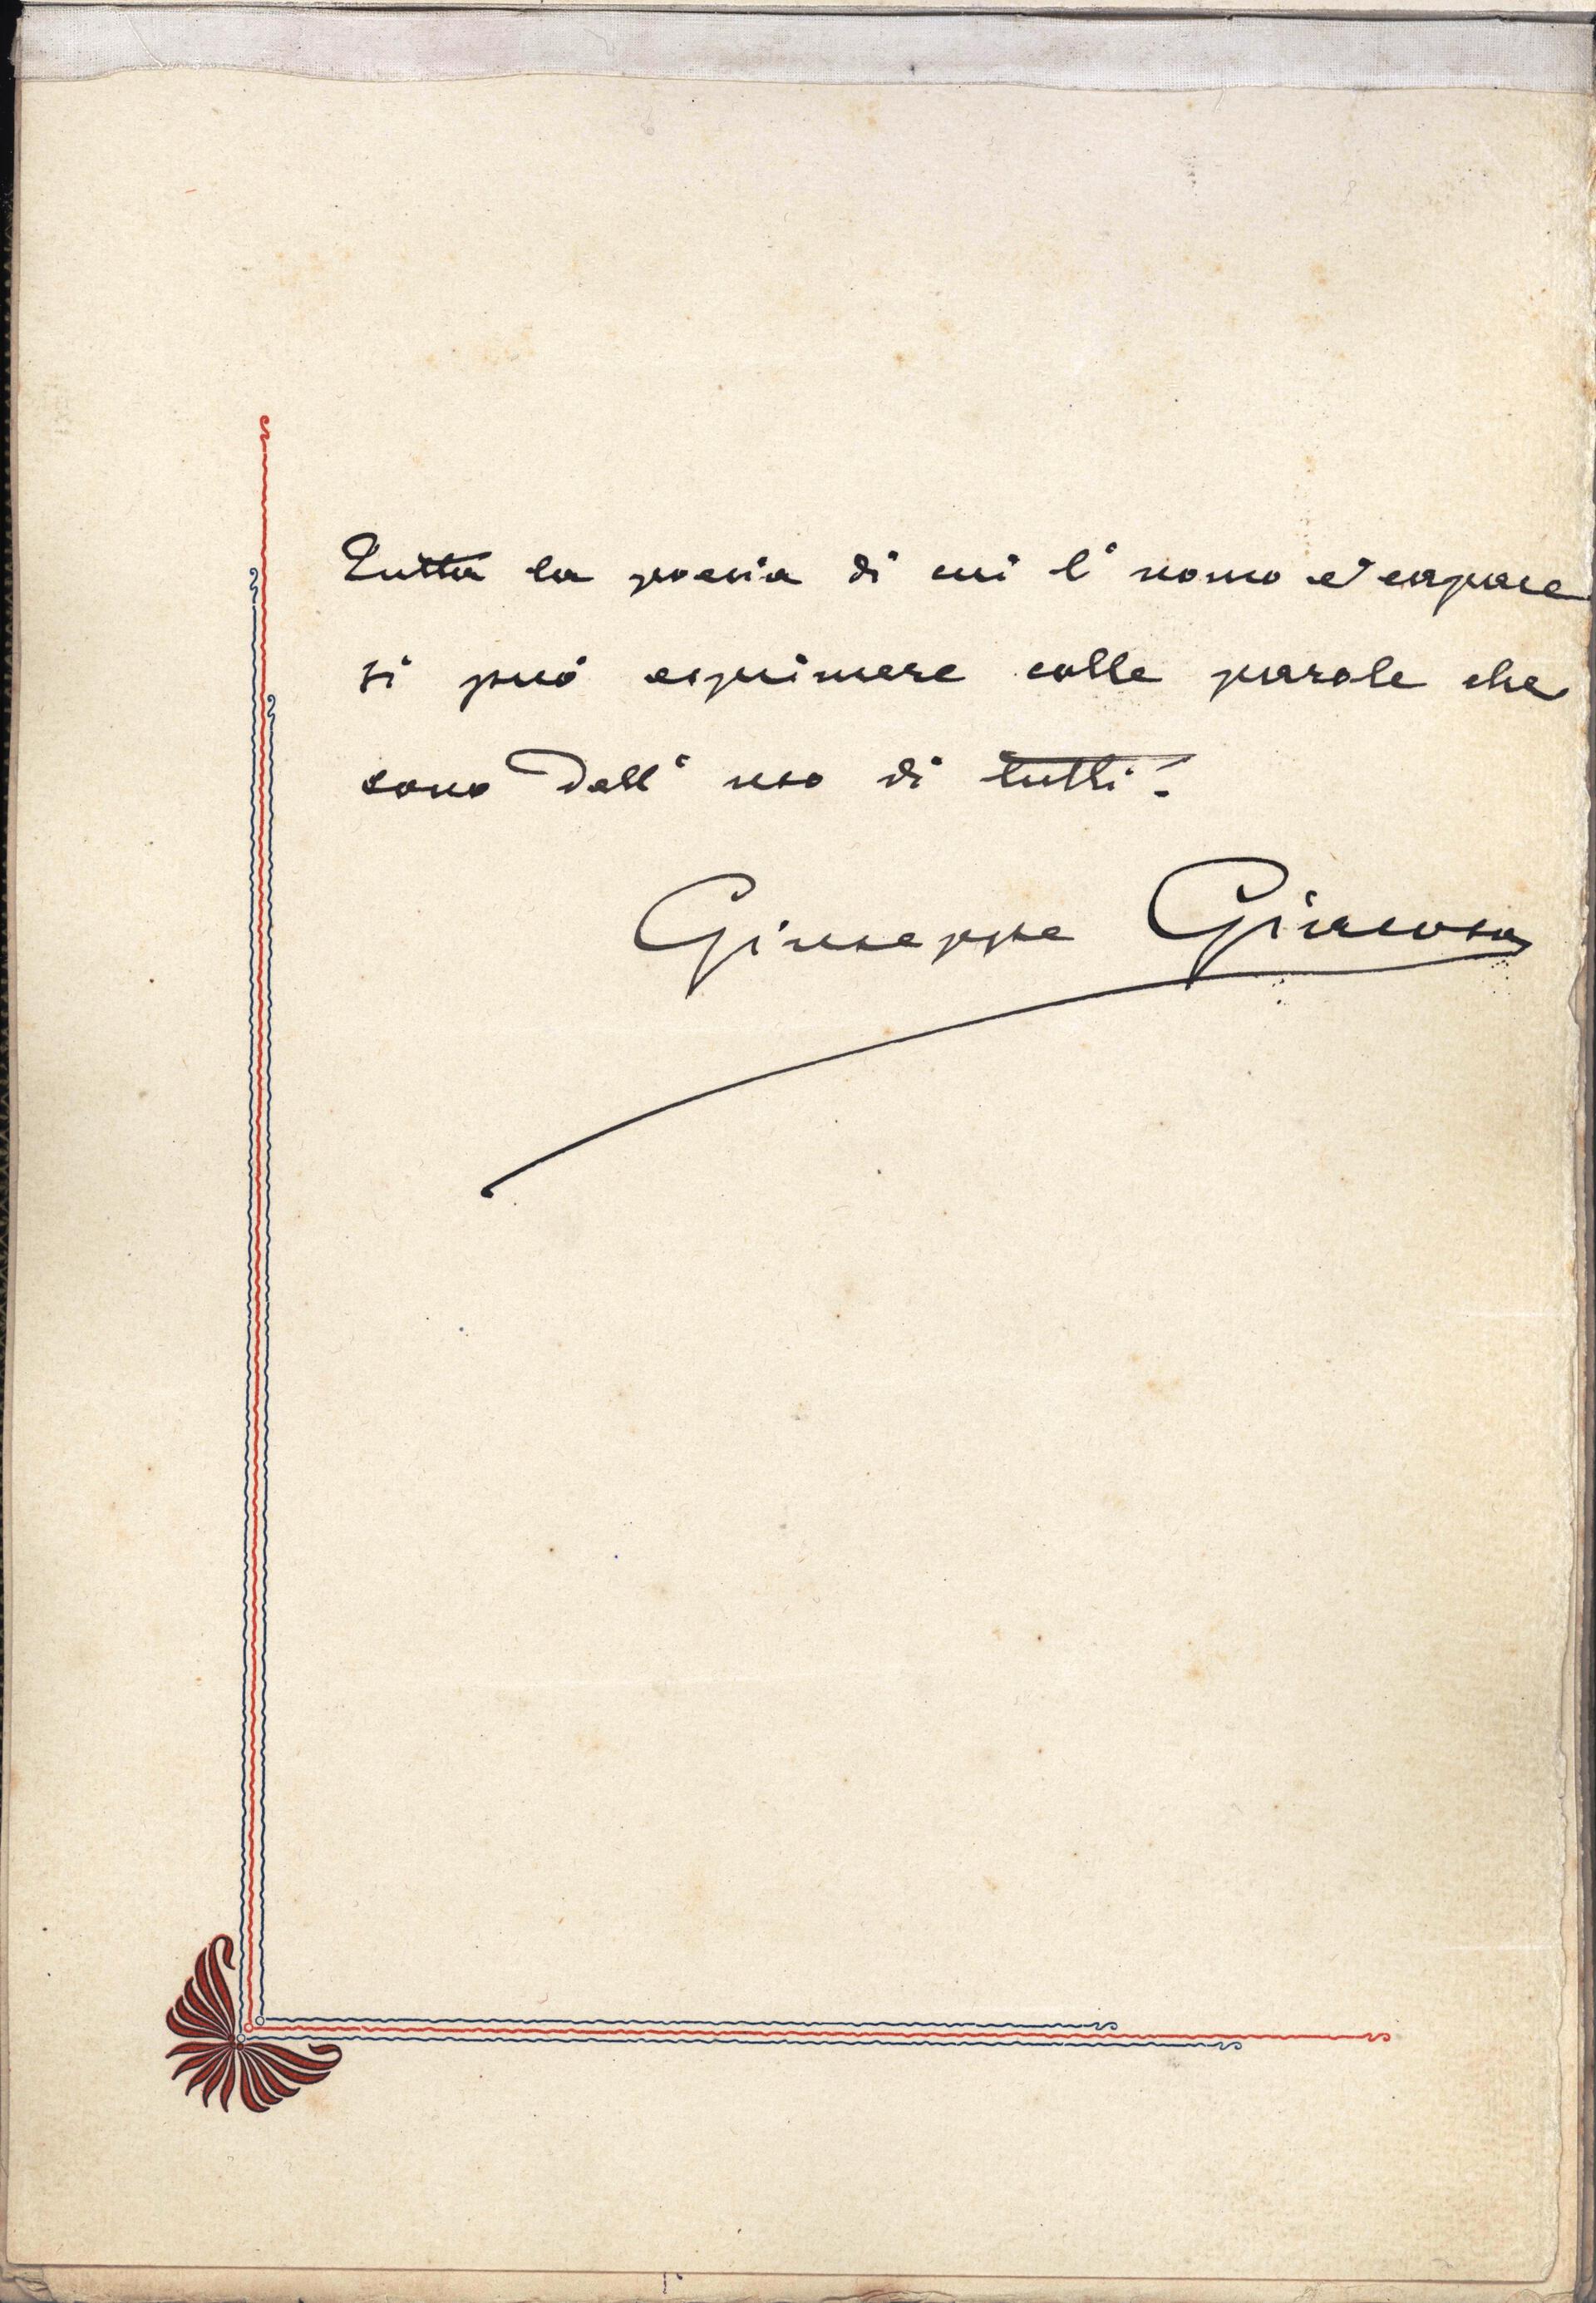 Tutta la poesia di cui l'uomo è capace
si può esprimere colle parole che
sono dell'uso di tutti.
Giuseppe Giacosa